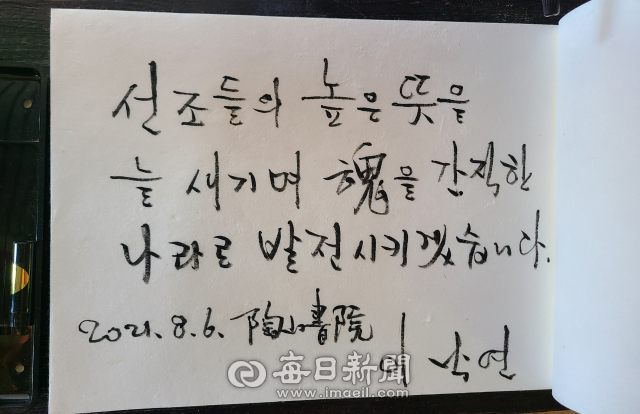 선조들의 높은 뜻을
늘 새기며 魂을 간직한
나라로 발전시키겠습니다.
2021.8.6. 陶山書院
이 낙연
每日新聞
www.imaeil.com